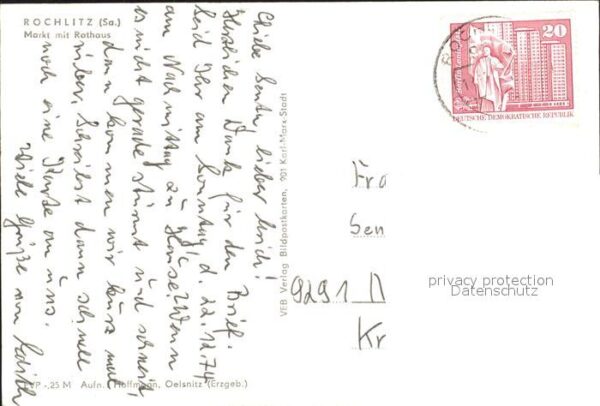 ROCHLITZ (Sa.)
Markt mit Rathaus
Liebe Senta, lieber Erich!
Herzlichen Dank für den Brief.
Seid Ihr am Sonntag, d. 22.12.74
am Nachmittag zu Hause? Wenn
es nicht gerade stürmt und schneit,
dann kommen wir kurz mal
rüber. Schreibst dann schnell
noch eine Karte an uns.
Viele Grüße von Edith
VEB Verlag Bildpostkarten, 901 Karl-Marx-Stadt
-,25 M Aufn.: Hoffmann, Oelsnitz (Erzgeb.)
20
DEUTSCHE DEMOKRATISCHE REPUBLIK
Fra
Sen
9291
Kr
privacy protection
Datenschutz